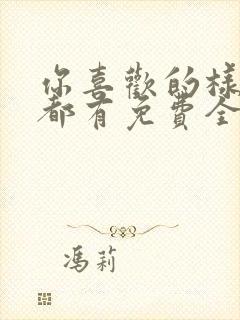 你喜歡的樣
都有免費全
馮莉